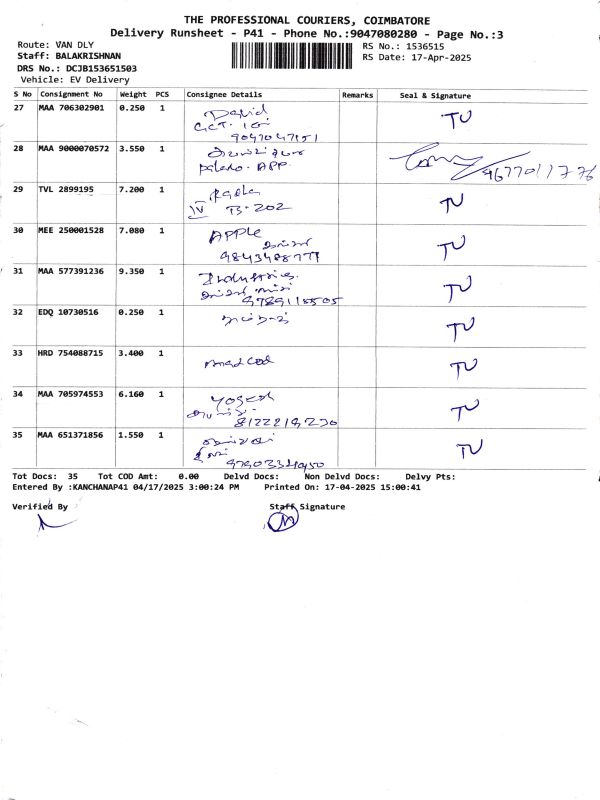 THE PROFESSIONAL COURIERS, COIMBATORE
Delivery Runsheet - P41 - Phone No.:9047080280 - Page No.:3
Route: VAN DLY
Staff: BALAKRISHNAN
DRS No.: DCJB153651503
Vehicle: EV Delivery
RS No.: 1536515
RS Date: 17-Apr-2025
S No Consignment No Weight PCS Consignee Details Remarks Seal & Signature
27 MAA 706302901 0.250 1 David TU
28 MAA 9000070572 3.550 1 APP. 9677011776
29 TVL 2899195 7.200 1 IV B-202 TU
30 MEE 250001528 7.080 1 APPLE TU
31 MAA 577391236 9.350 1 Industries. TU
32 EDQ 10730516 0.250 1 TU
33 HRD 754088715 3.400 1 TU
34 MAA 705974553 6.160 1 Yogesh TU
8122219230
35 MAA 651371856 1.550 1 TU
Tot Docs: 35 Tot COD Amt: 0.00 Delvd Docs: Non Delvd Docs: Delvy Pts:
Entered By :KANCHANAP41 04/17/2025 3:00:24 PM Printed On: 17-04-2025 15:00:41
Verified By Staff Signature